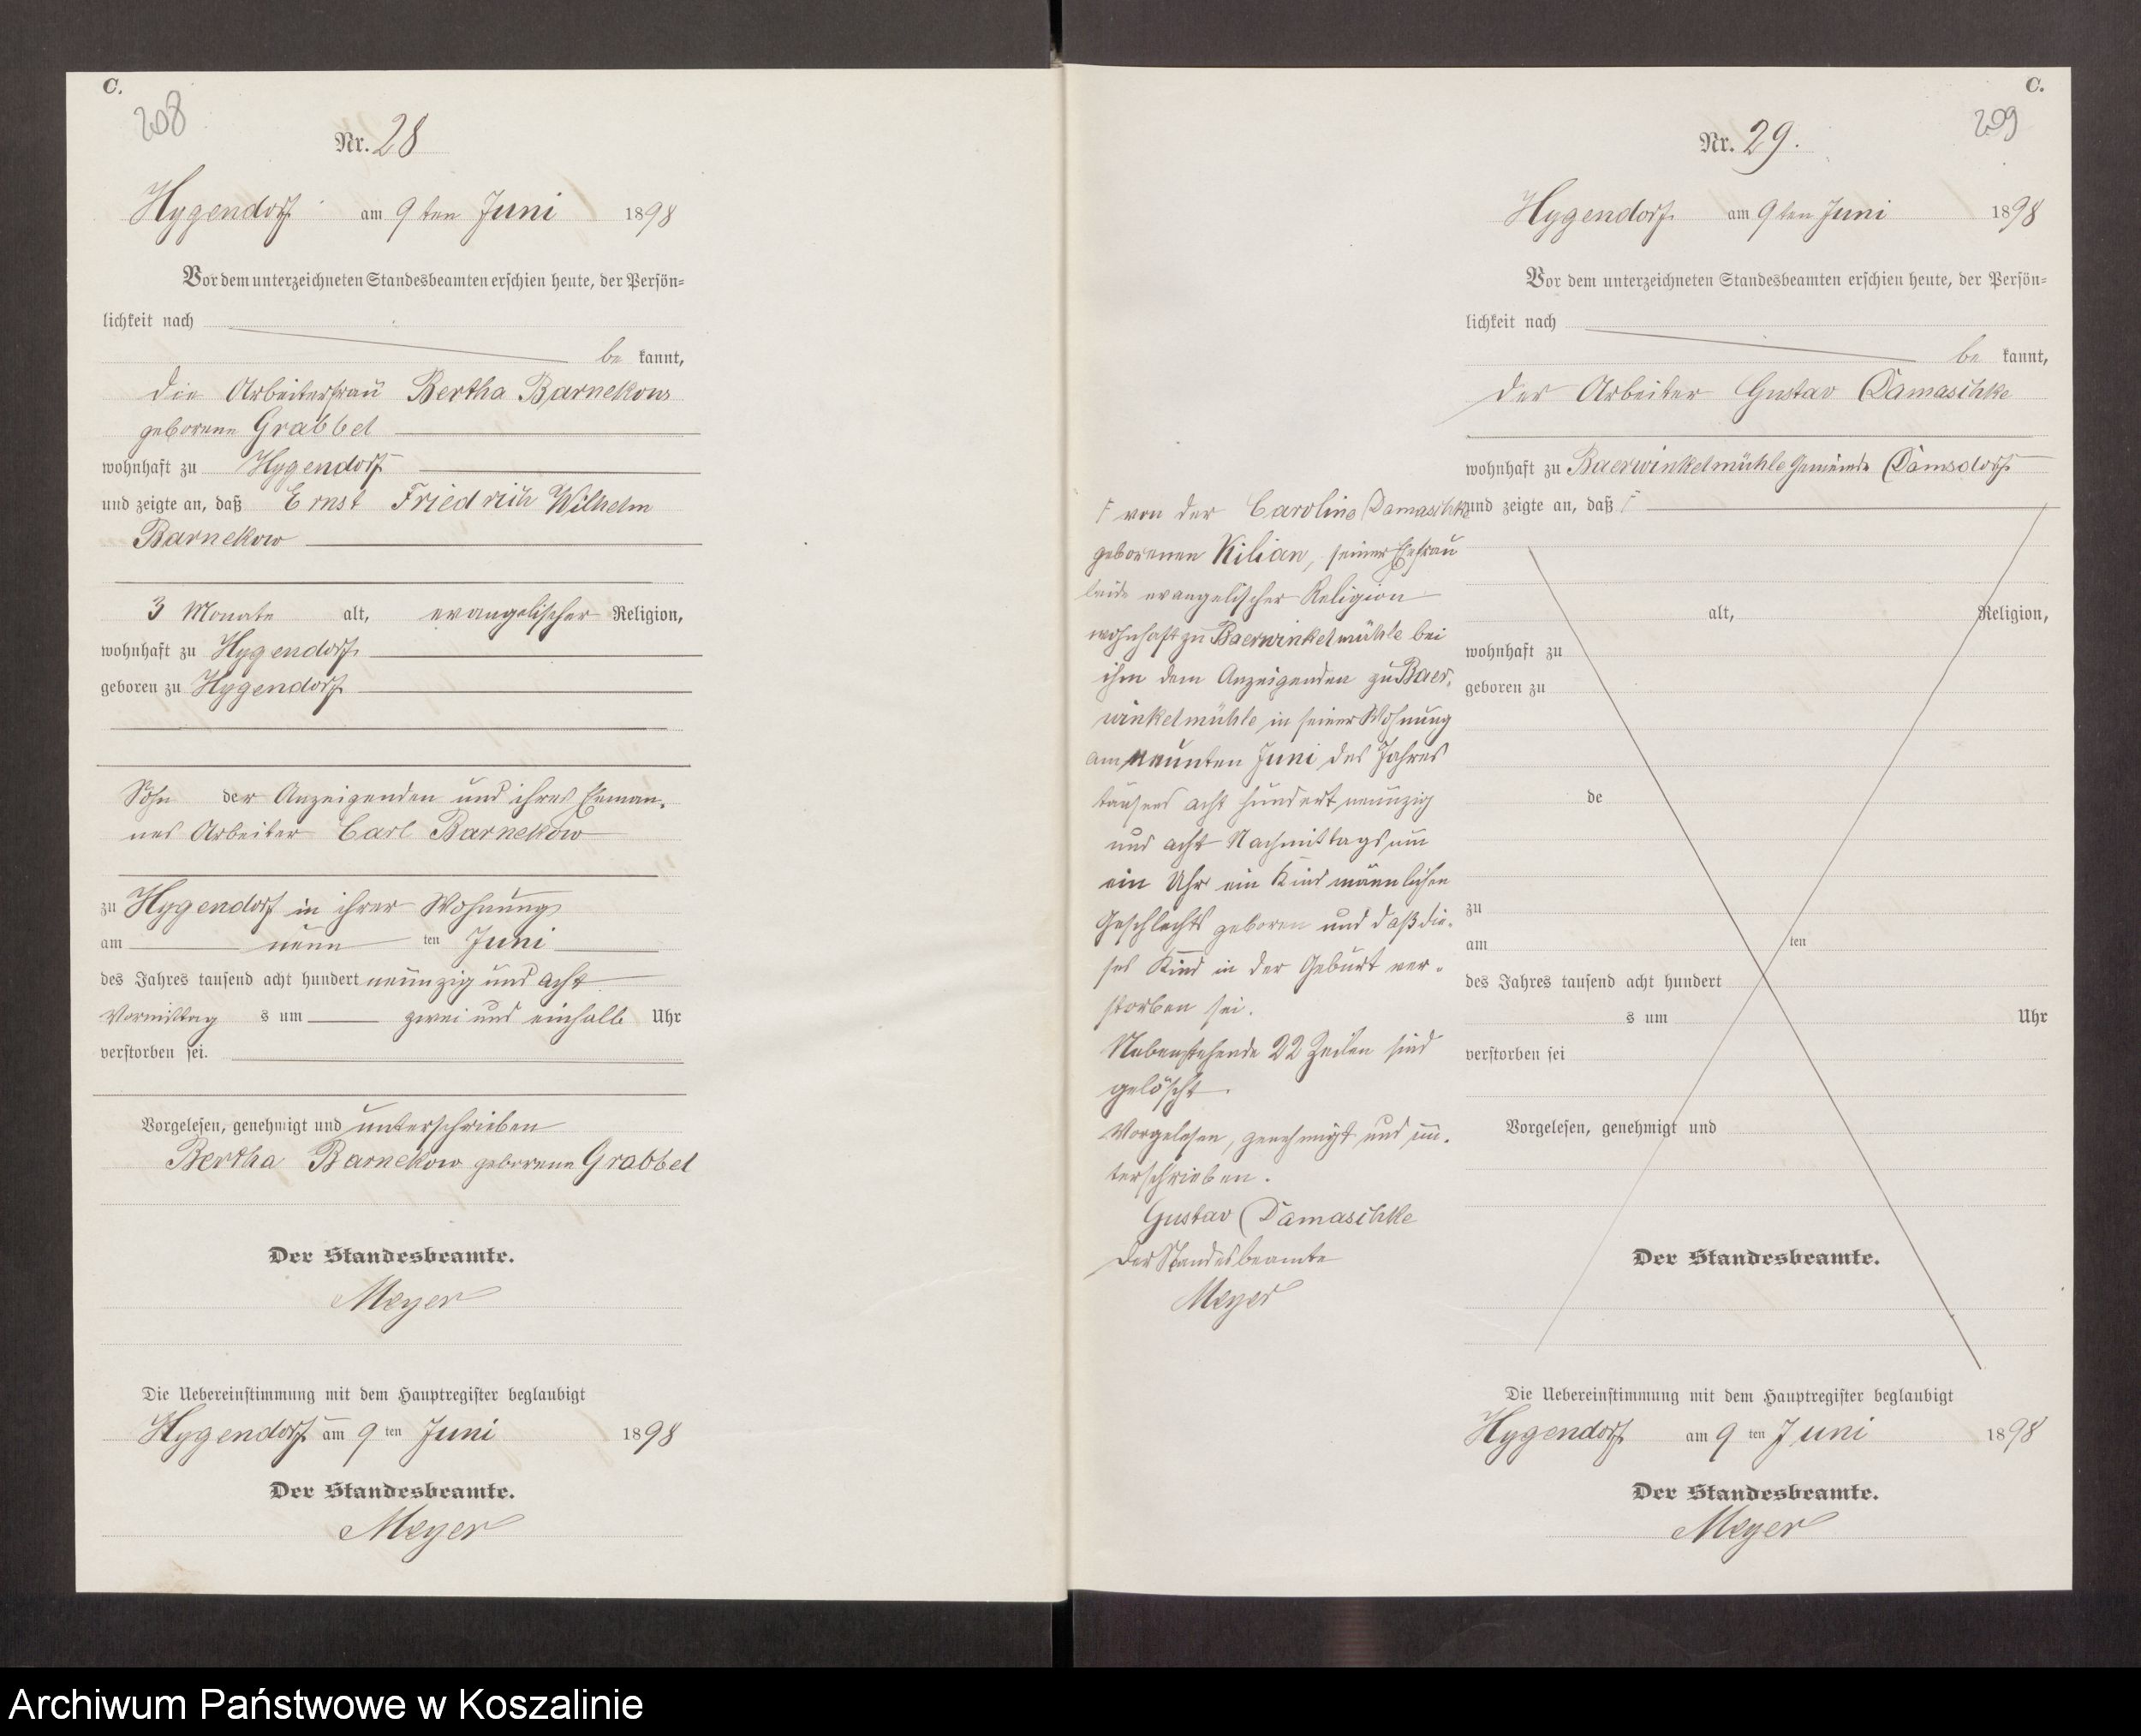 C.
208
Nr. 28
Hygendorf am 9ten Juni 1898
Vor dem unterzeichneten Standesbeamten erschien heute, der Persön=
lichkeit nach
be kannt,
die Arbeiterfrau Bertha Barnekow
geborene Grabbel
wohnhaft zu Hygendorf
und zeigte an, daß Ernst Friedrich Wilhelm
Barnekow
3 Monate alt, evangelischer Religion,
wohnhaft zu Hygendorf
geboren zu Hygendorf
Sohn der Anzeigenden und ihres Eheman-
nes Arbeiter Carl Barnekow
zu Hygendorf in ihrer Wohnung
am neun ten Juni
des Jahres tausend acht hundert neunzig und acht
Vormittag s um zwei und einhalb Uhr
verstorben sei.
Vorgelesen, genehmigt und unterschrieben
Bertha Barnekow geborene Grabbel
Der Standesbeamte.
Meyer
Die Uebereinstimmung mit dem Hauptregister beglaubigt
Hygendorf am 9 ten Juni 1898
Der Standesbeamte.
Meyer
C.
209
Nr. 29.
Hygendorf am 9ten Juni 1898
Vor dem unterzeichneten Standesbeamten erschien heute, der Persön=
lichkeit nach
be kannt,
der Arbeiter Gustav Damaschke
wohnhaft zu Baerwinkelmühle Gemeinde Damsdorf
und zeigte an, daß F
alt, Religion,
wohnhaft zu
geboren zu
de
zu
am ten
des Jahres tausend acht hundert
s um Uhr
verstorben sei
Vorgelesen, genehmigt und
F von der Caroline Damaschke
geborenen Kilian, seiner Ehefrau
beide evangelischer Religion
wohnhaft zu Baerwinkelmühle bei
ihm dem Anzeigenden zu Baer-
winkelmühle in seiner Wohnung
am neunten Juni des Jahres
tausend acht hundert neunzig
und acht Nachmittags um
ein Uhr ein Kind männlichen
Geschlechts geboren und daß die-
ses Kind in der Geburt ver-
storben sei.
Nebenstehende 22 Zeilen sind
gelöscht.
Vorgelesen, genehmigt und un-
terschrieben.
Gustav Damaschke
Der Standesbeamte
Meyer
Der Standesbeamte.
Die Uebereinstimmung mit dem Hauptregister beglaubigt
Hygendorf am 9 ten Juni 1898
Der Standesbeamte.
Meyer
Archiwum Państwowe w Koszalinie